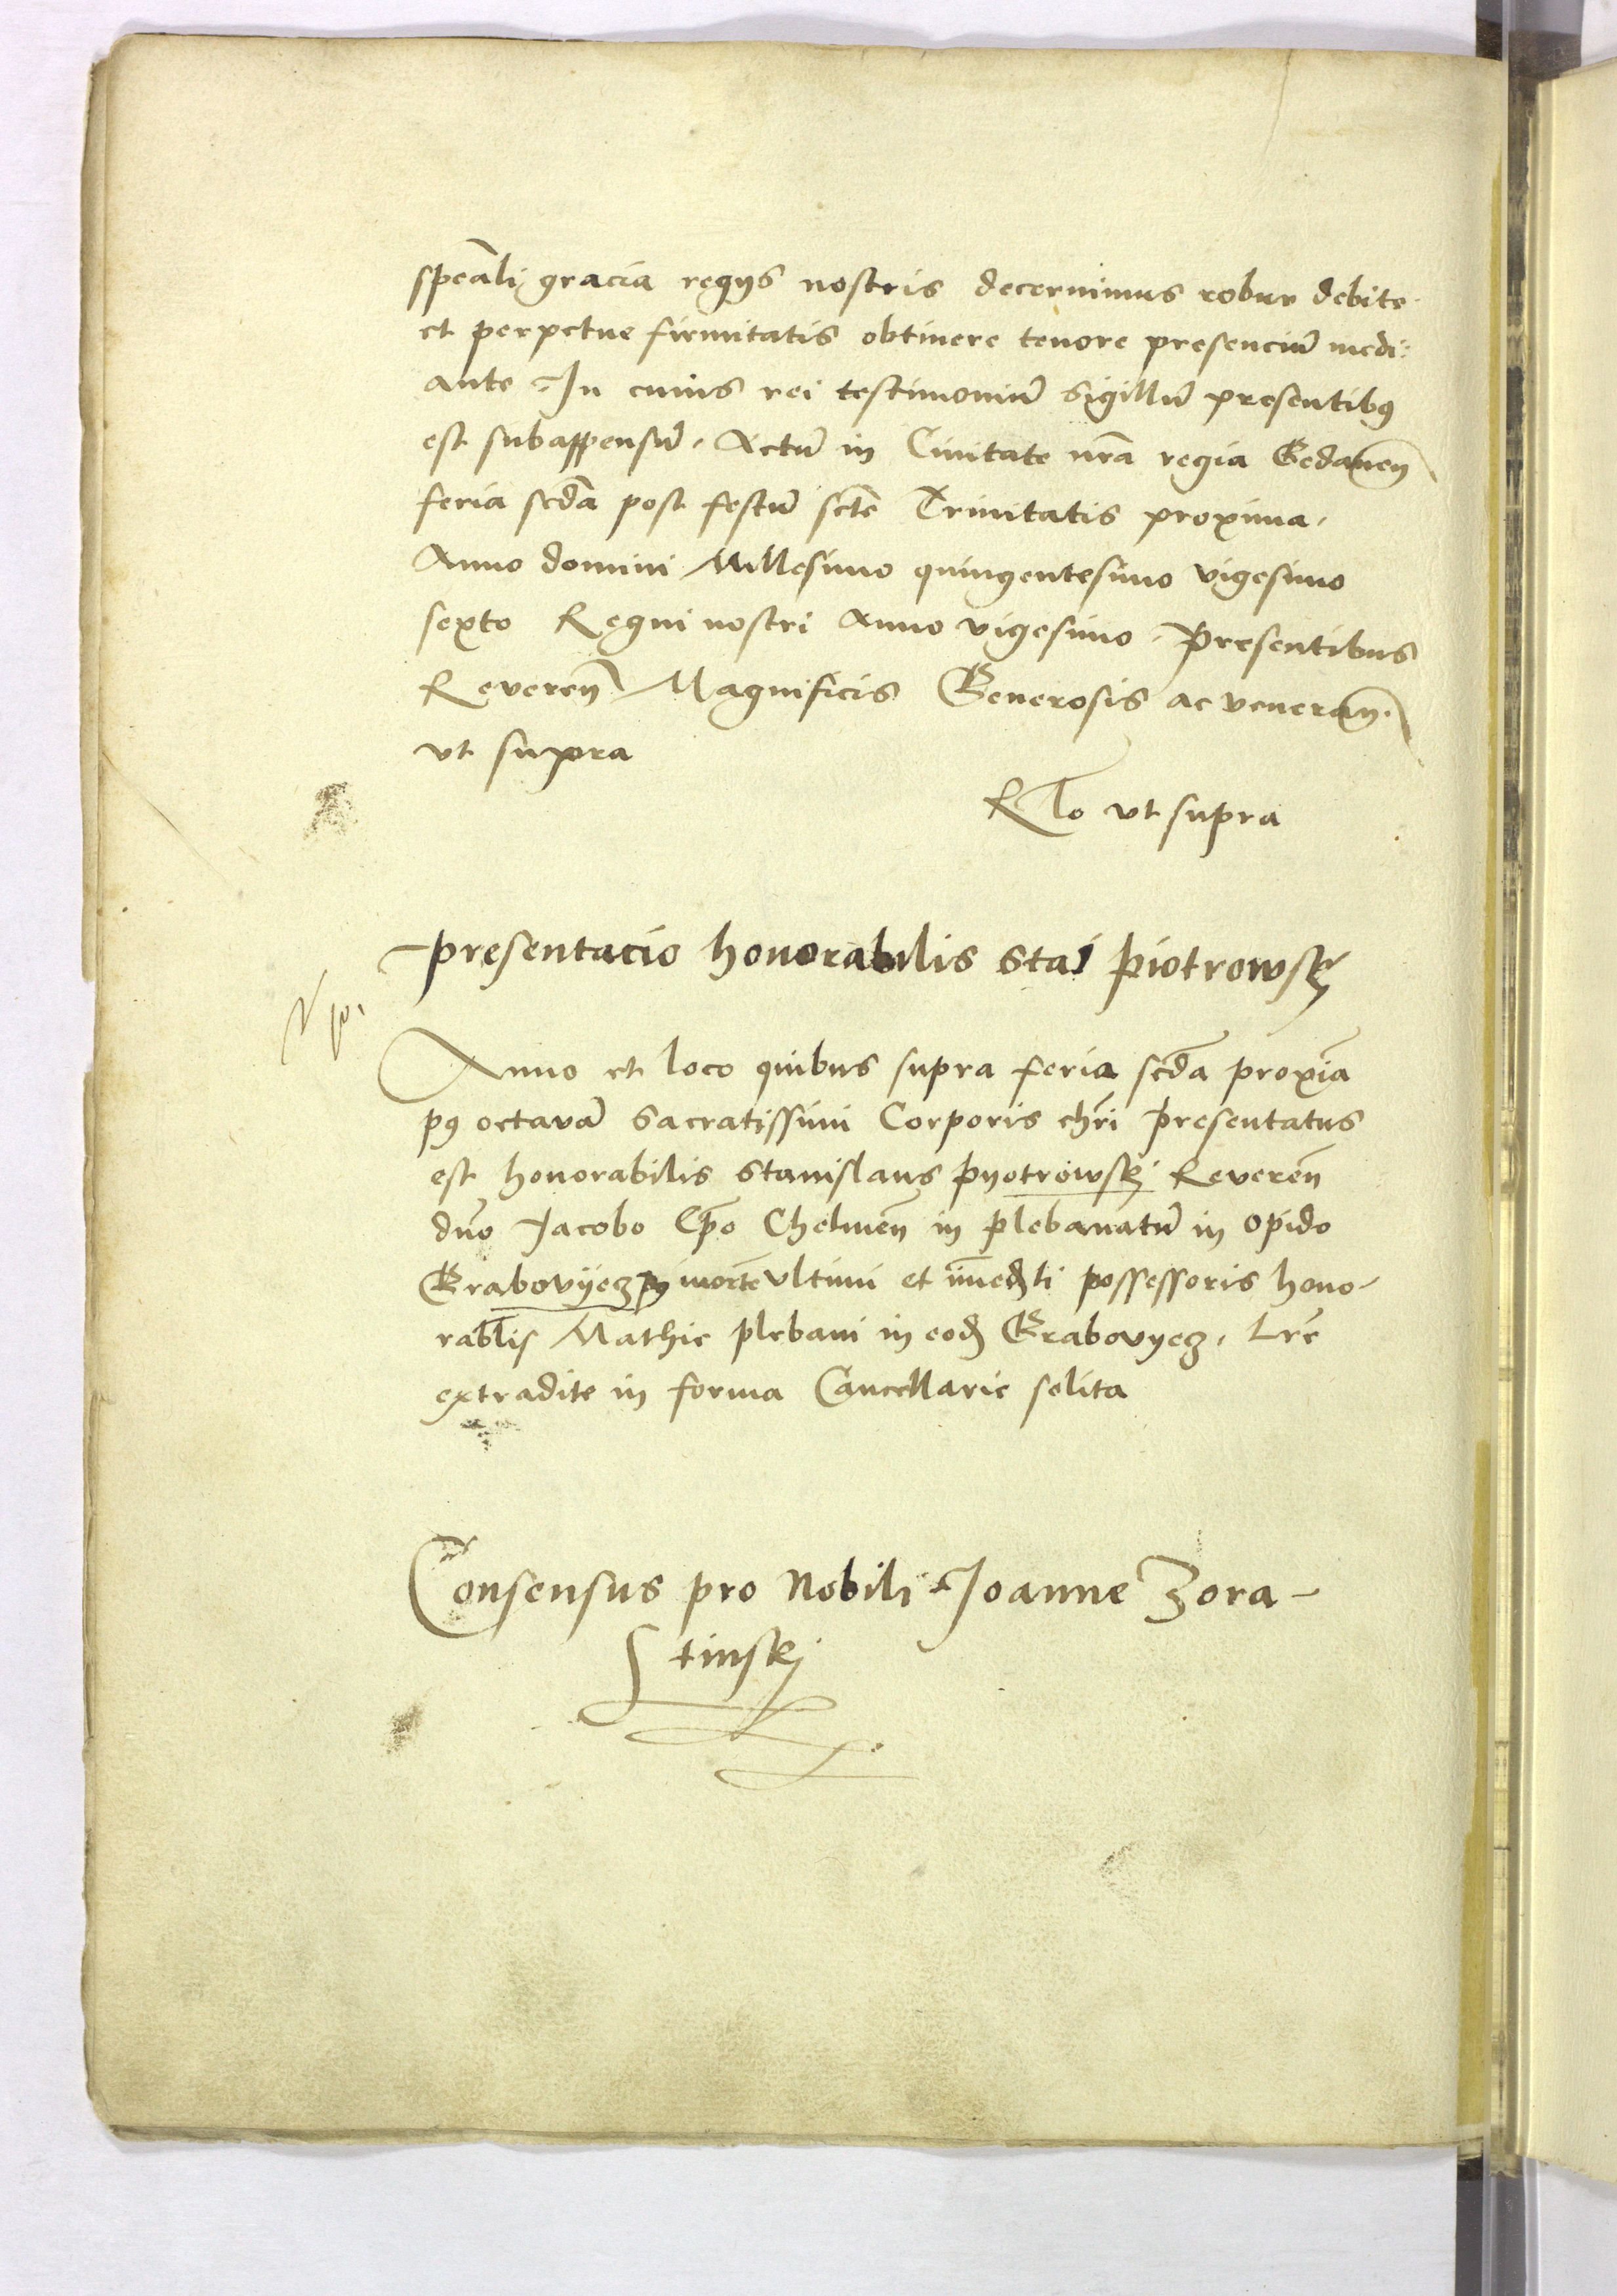 speāli gracia regys nostris decernimus robur debite
et perpetue firmitatis obtinere tenore presenciū medi:
ante In cuius rei testimoniū sigillū presentibꝰ
est subappensū. Actū in Civitate nrā regia Gedaneñ
feria scdā post festū scte Trinitatis proxima.
Anno domini Millesimo quingentesimo vigesimo
sexto Regni nostri Anno vigesimo. Presentibus
Revereñ Magnificis Generosis ac venerañ.
vt supra
Rlo vt supra
Presentacio honorabilis Stai Piotrowsky
Anno et loco quibus supra feria scdā proxīa
pꝰ octavā Sacratissimi Corporis chri presentatus
est honorabilis Stanislaus Pyotrowskj Revereñ
dno Jacobo Epō Chelmeñ in plebanatū in opido
Grabovyecz pꝰ mortē ultimi et īmedti possessoris hono-
rabilis Mathie plebani in eod Grabovyecz. Lre
extradite in forma Cancellarie solita
Consensus pro Nobili Joanne Zora-
tinskj